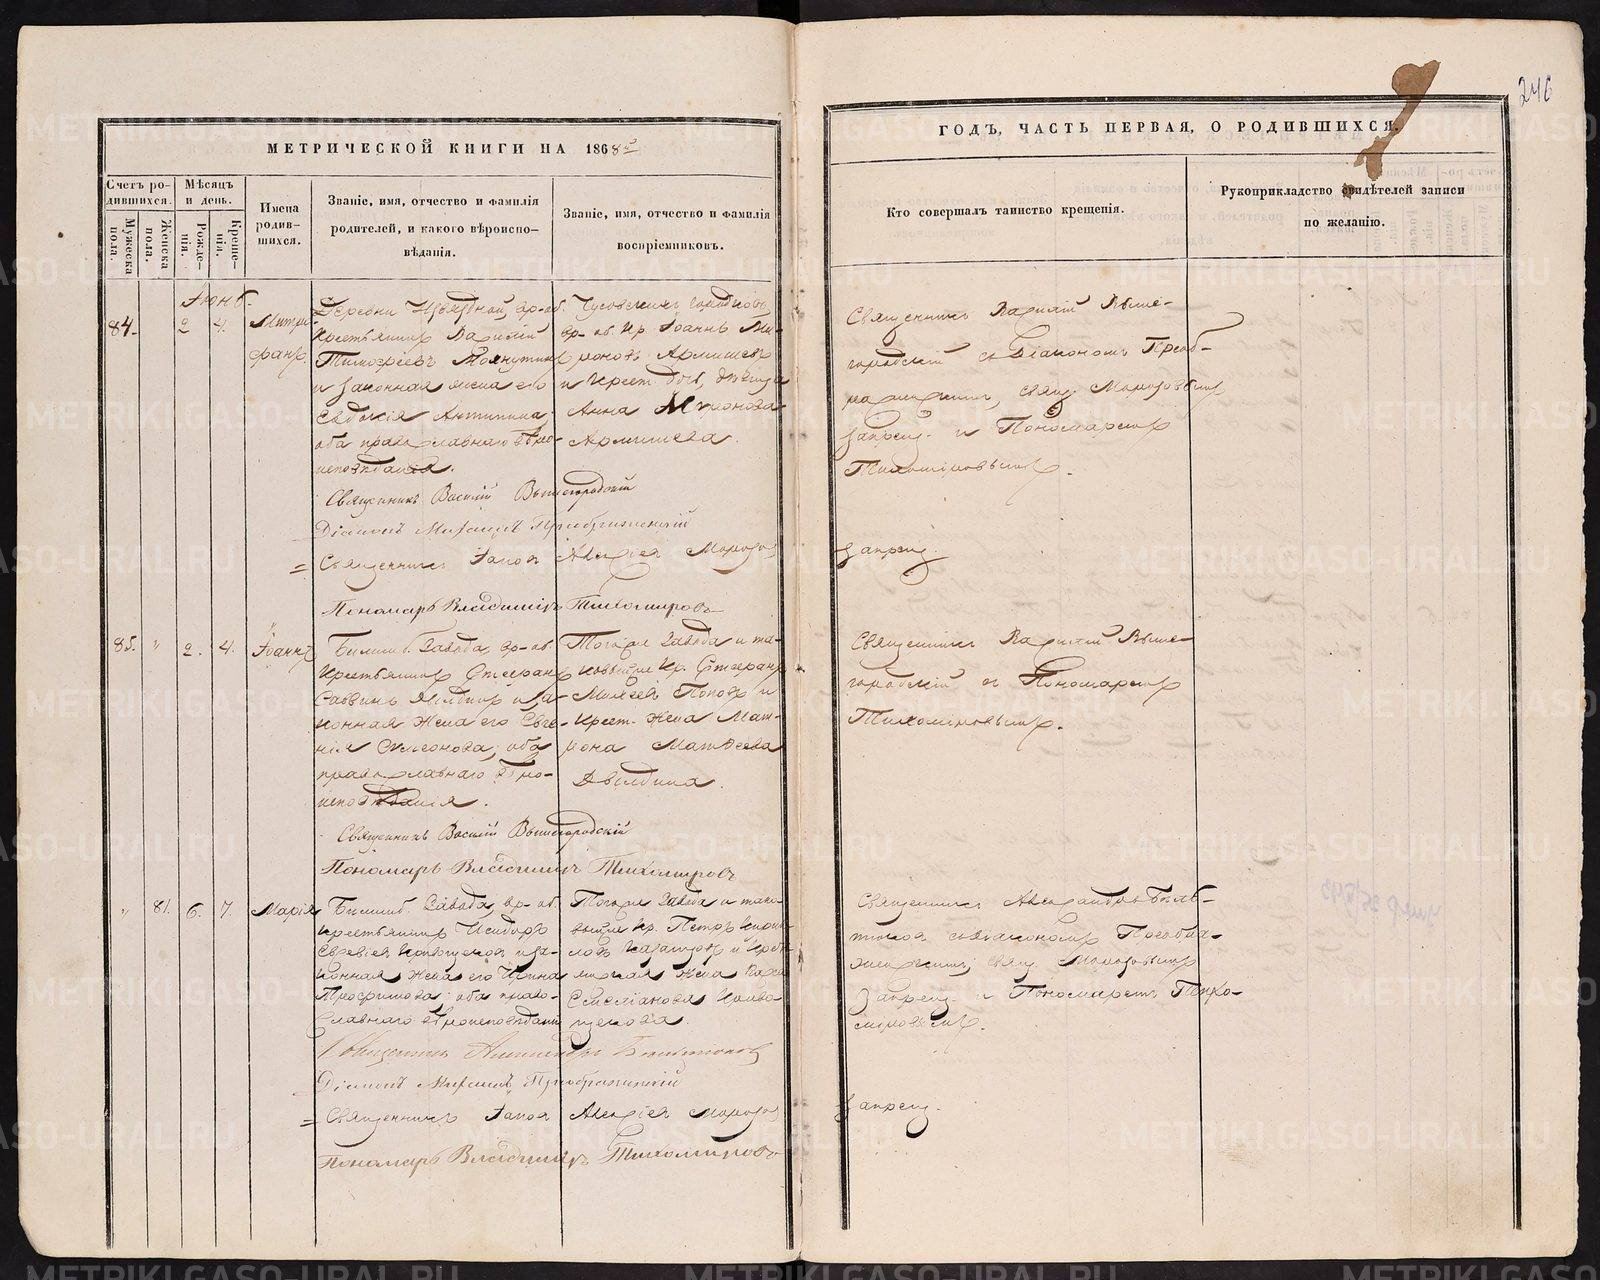 246
МЕТРИЧЕСКОЙ КНИГИ НА 1868й
ГОДЪ, ЧАСТЬ ПЕРВАЯ, О РОДИВШИХСЯ.
Счетъ родившихся.
Мужеска пола.
Женска пола.
Мѣсяцъ и день.
Рожденія.
Крещенія.
Имена родившихся.
Званіе, имя, отчество и фамилія
родителей, и какого вѣроиспо-
вѣданія.
Званіе, имя, отчество и фамилія
воспріемниковъ.
Кто совершалъ таинство крещенія.
Рукоприкладство свидѣтелей записи
по желанію.
Іюнь.
84. 2 4. Митро-
фанъ.
Деревни вр-об.
Крестьянинъ Василій
Тимофѣевъ
и законная жена его
Евдокія Антипина
оба православнаго вѣро-
исповѣданія.
вр-об. кр. Іоаннъ Ми-
роновъ Армишевъ
и крест. дочь, дѣвица
Анна Миронова
Армишева.
Священникъ Василій Выше-
городскій съ Діакономъ Преоб-
раженскимъ, свящ. Морозовымъ
запрещ. и Пономаремъ
Тихоміровымъ.
Священникъ Василій Вышегородскій
Діаконъ Михаилъ Преображенскій
= Священникъ Іаковъ Алексѣевъ Морозовъ запрещ.
Пономарь Владиміръ Тихомировъ
85. " 2. 4. Іоаннъ
Билимб. Завода, вр-об.
Крестьянинъ Стефанъ
Саввинъ и за-
конная жена его Евге-
нія Симеонова, оба
православнаго вѣро-
исповѣданія.
Тогоже Завода и та-
ковыеже кр. Стефанъ
Моисеевъ Поповъ и
крест. жена Мат-
рона Матвѣева
Двѣлдина.
Священникъ Василій Выше-
городскій съ Пономаремъ
Тихоміровымъ.
Священникъ Василій Вышегородскій
Пономарь Владиміръ Тихомировъ
" 81. 6. 7. Марія
Билимб. Завода, вр-об.
крестьянинъ Исидоръ
и за-
конная жена его Ирина
Трофимова, оба право-
славнаго вѣроисповѣданія
Тогоже Завода и тако-
выеже кр. Петръ Кирил-
ловъ и крест-
жена
Священникъ Александръ
съ діакономъ Преобра-
женскимъ, свящ. Морозовымъ
запрещ. и Пономаремъ Тихо-
міровымъ.
Священникъ Александръ
Діаконъ Михаилъ Преображенскій
= Священникъ Іаковъ Алексѣевъ Морозовъ запрещ.
Пономарь Владиміръ Тихомировъ
METRIKI.GASO-URAL.RU